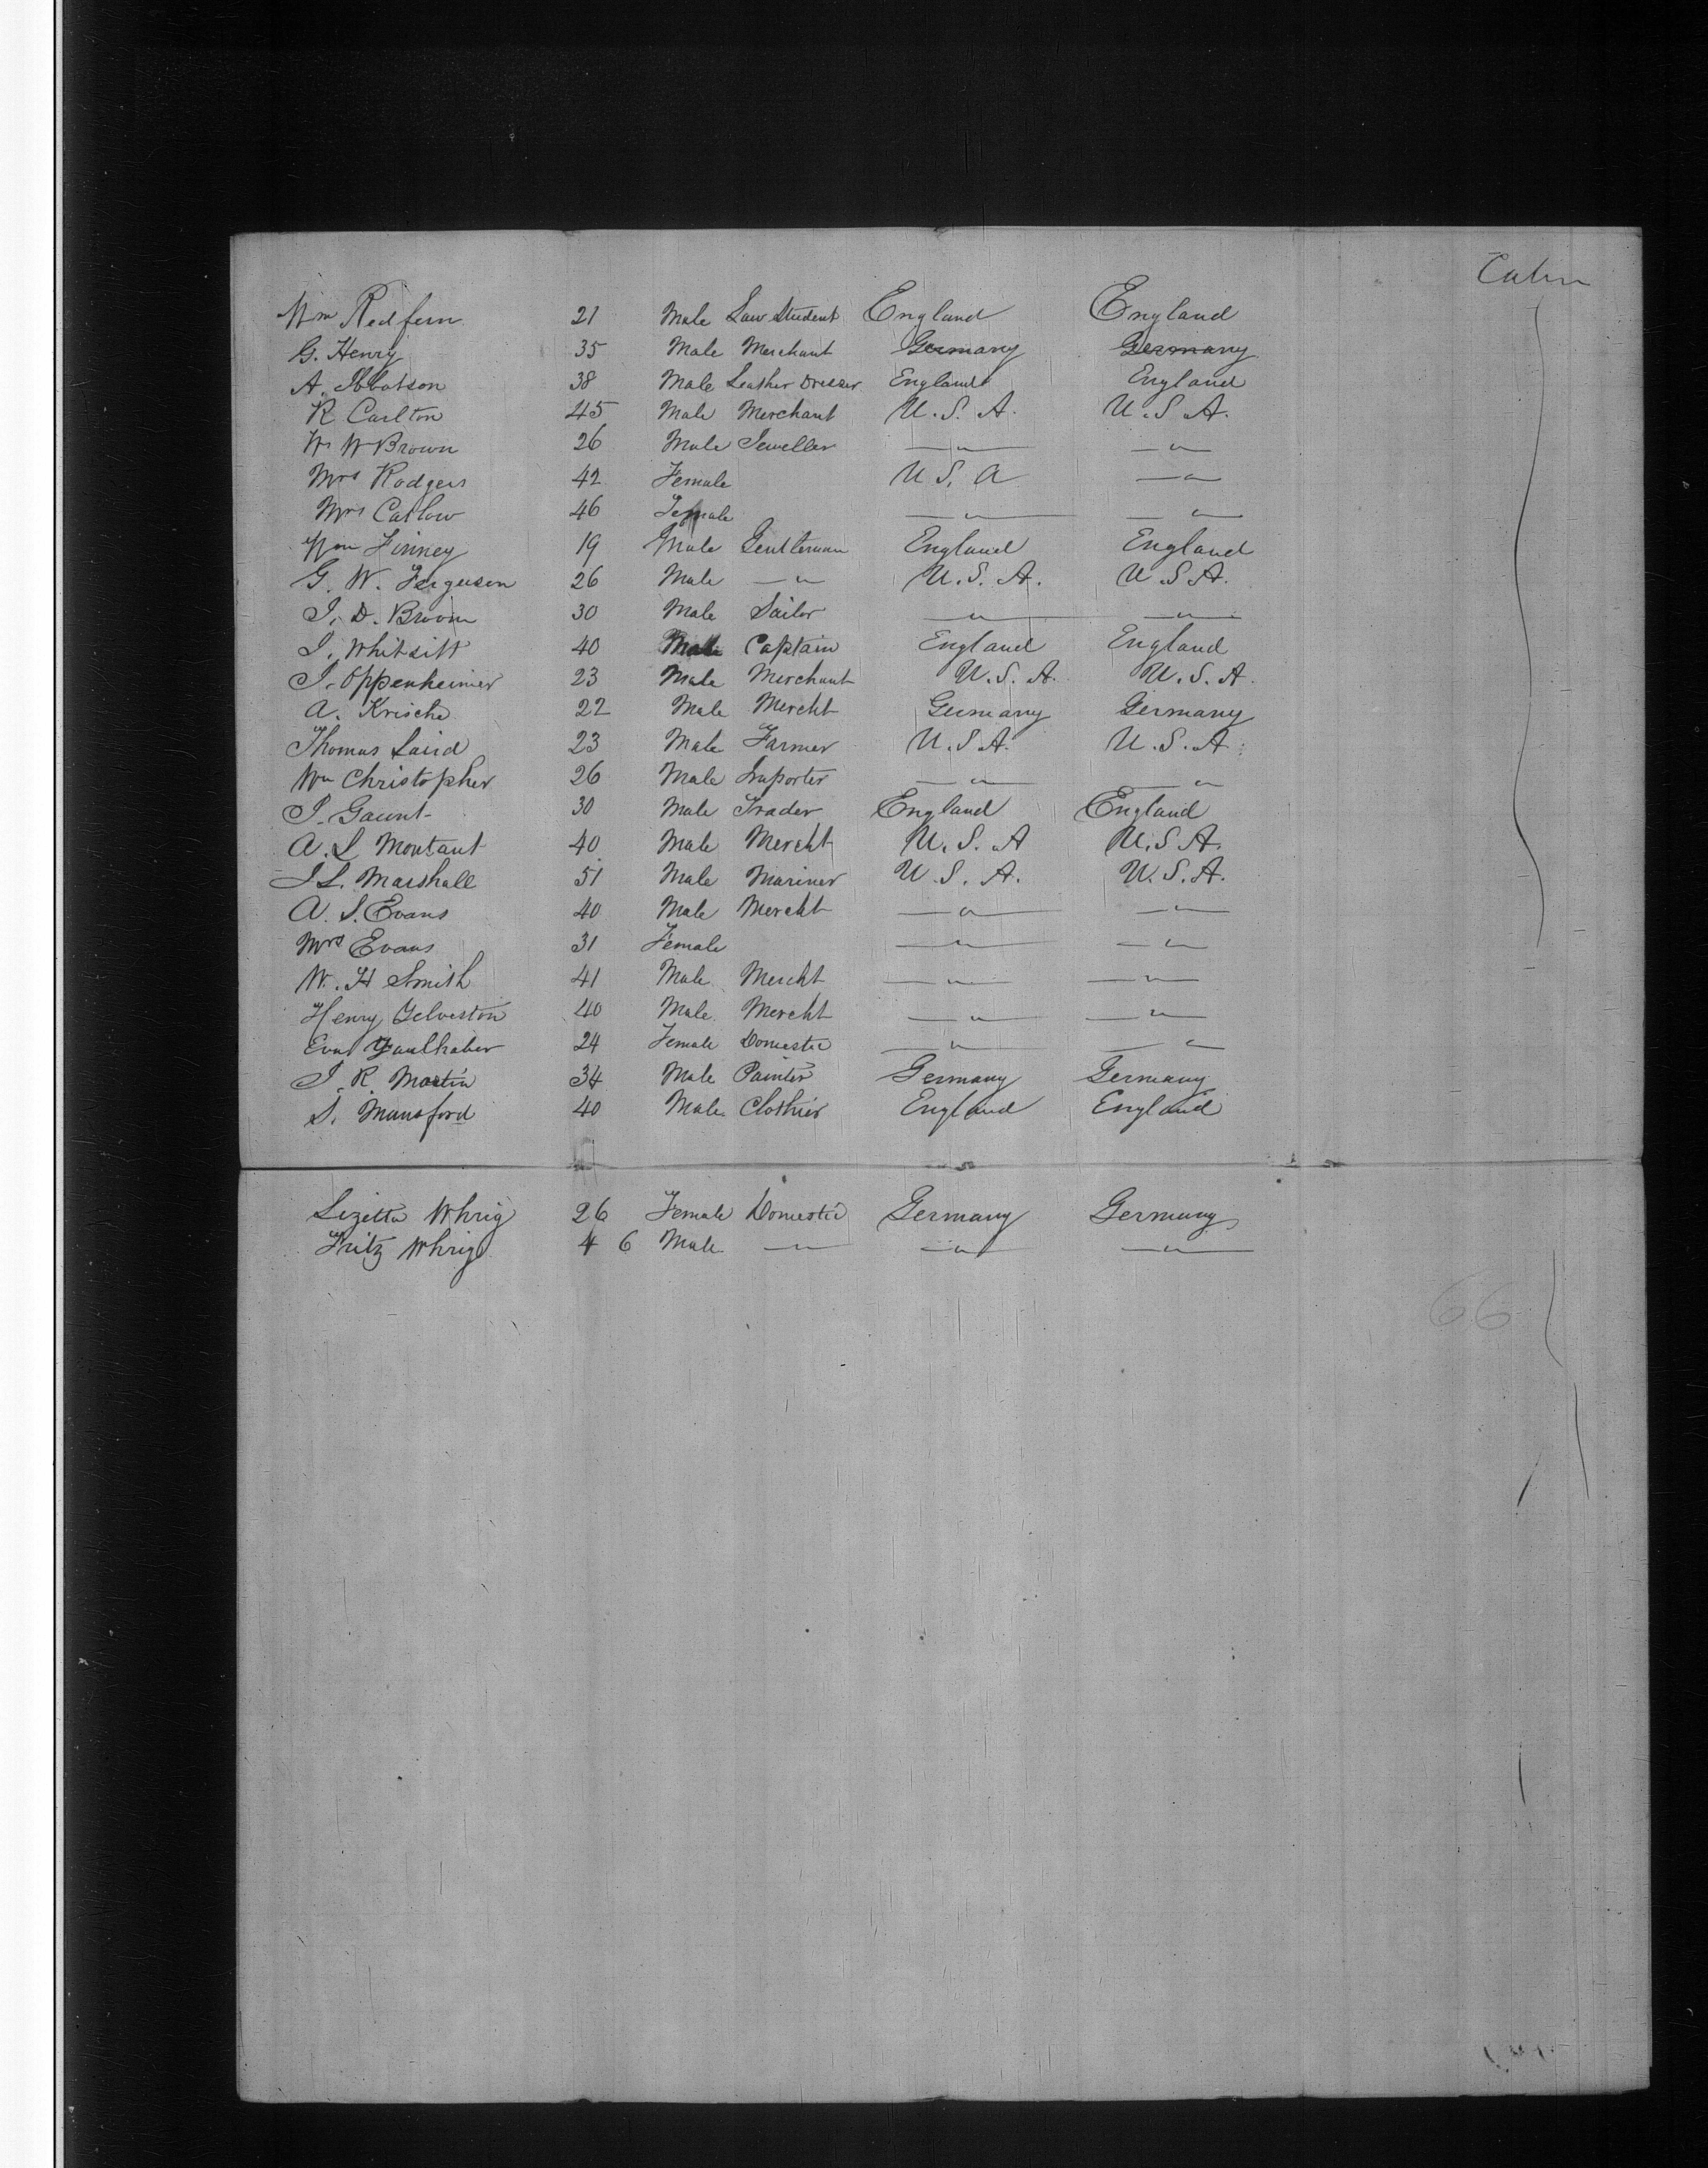 Cabin
Wm Redfern 21 Male Law Student England England
G. Henry 35 Male Merchant Germany Germany
A. Ibbotson 38 Male Leather Dresser England England
R Carlton 45 Male Merchant U.S.A. U.S.A.
W. W Brown 26 Male Jeweller —"— —"—
Mrs Rodgers 42 Female U S. A —"—
Mrs Catlow 46 Female —"— —"—
Wm Finney 19 Male Gentleman England England
G. W. Ferguson 26 Male —"— U.S.A. U.S.A.
J. D. Brown 30 Male Sailor —"— —"—
J. Whitsitt 40 Male Captain England England
J. Oppenheimer 23 Male Merchant U.S.A. U.S.A.
A. Krische 22 Male Mercht Germany Germany
Thomas Laird 23 Male Farmer U.S.A. U.S.A.
Wm Christopher 26 Male Importer —"— —"—
J. Gaunt 30 Male Trader England England
A. L Montant 40 Male Mercht U.S.A U.S.A.
J L. Marshall 51 Male Mariner U.S.A. U.S.A.
A. S. Evans 40 Male Mercht —"— —"—
Mrs Evans 31 Female —"— —"—
W. H Smith 41 Male Mercht —"— —"—
Henry Yelverton 40 Male Mercht —"— —"—
Faulhaber 24 Female Domestic —"— —"—
J. R. Martin 34 Male Painter Germany Germany
S. Mansford 40 Male Clothier England England
Lizetta Whrig 26 Female Domestic Germany Germany
Fritz Whrig 4 6 Male —"— —"— —"—
66